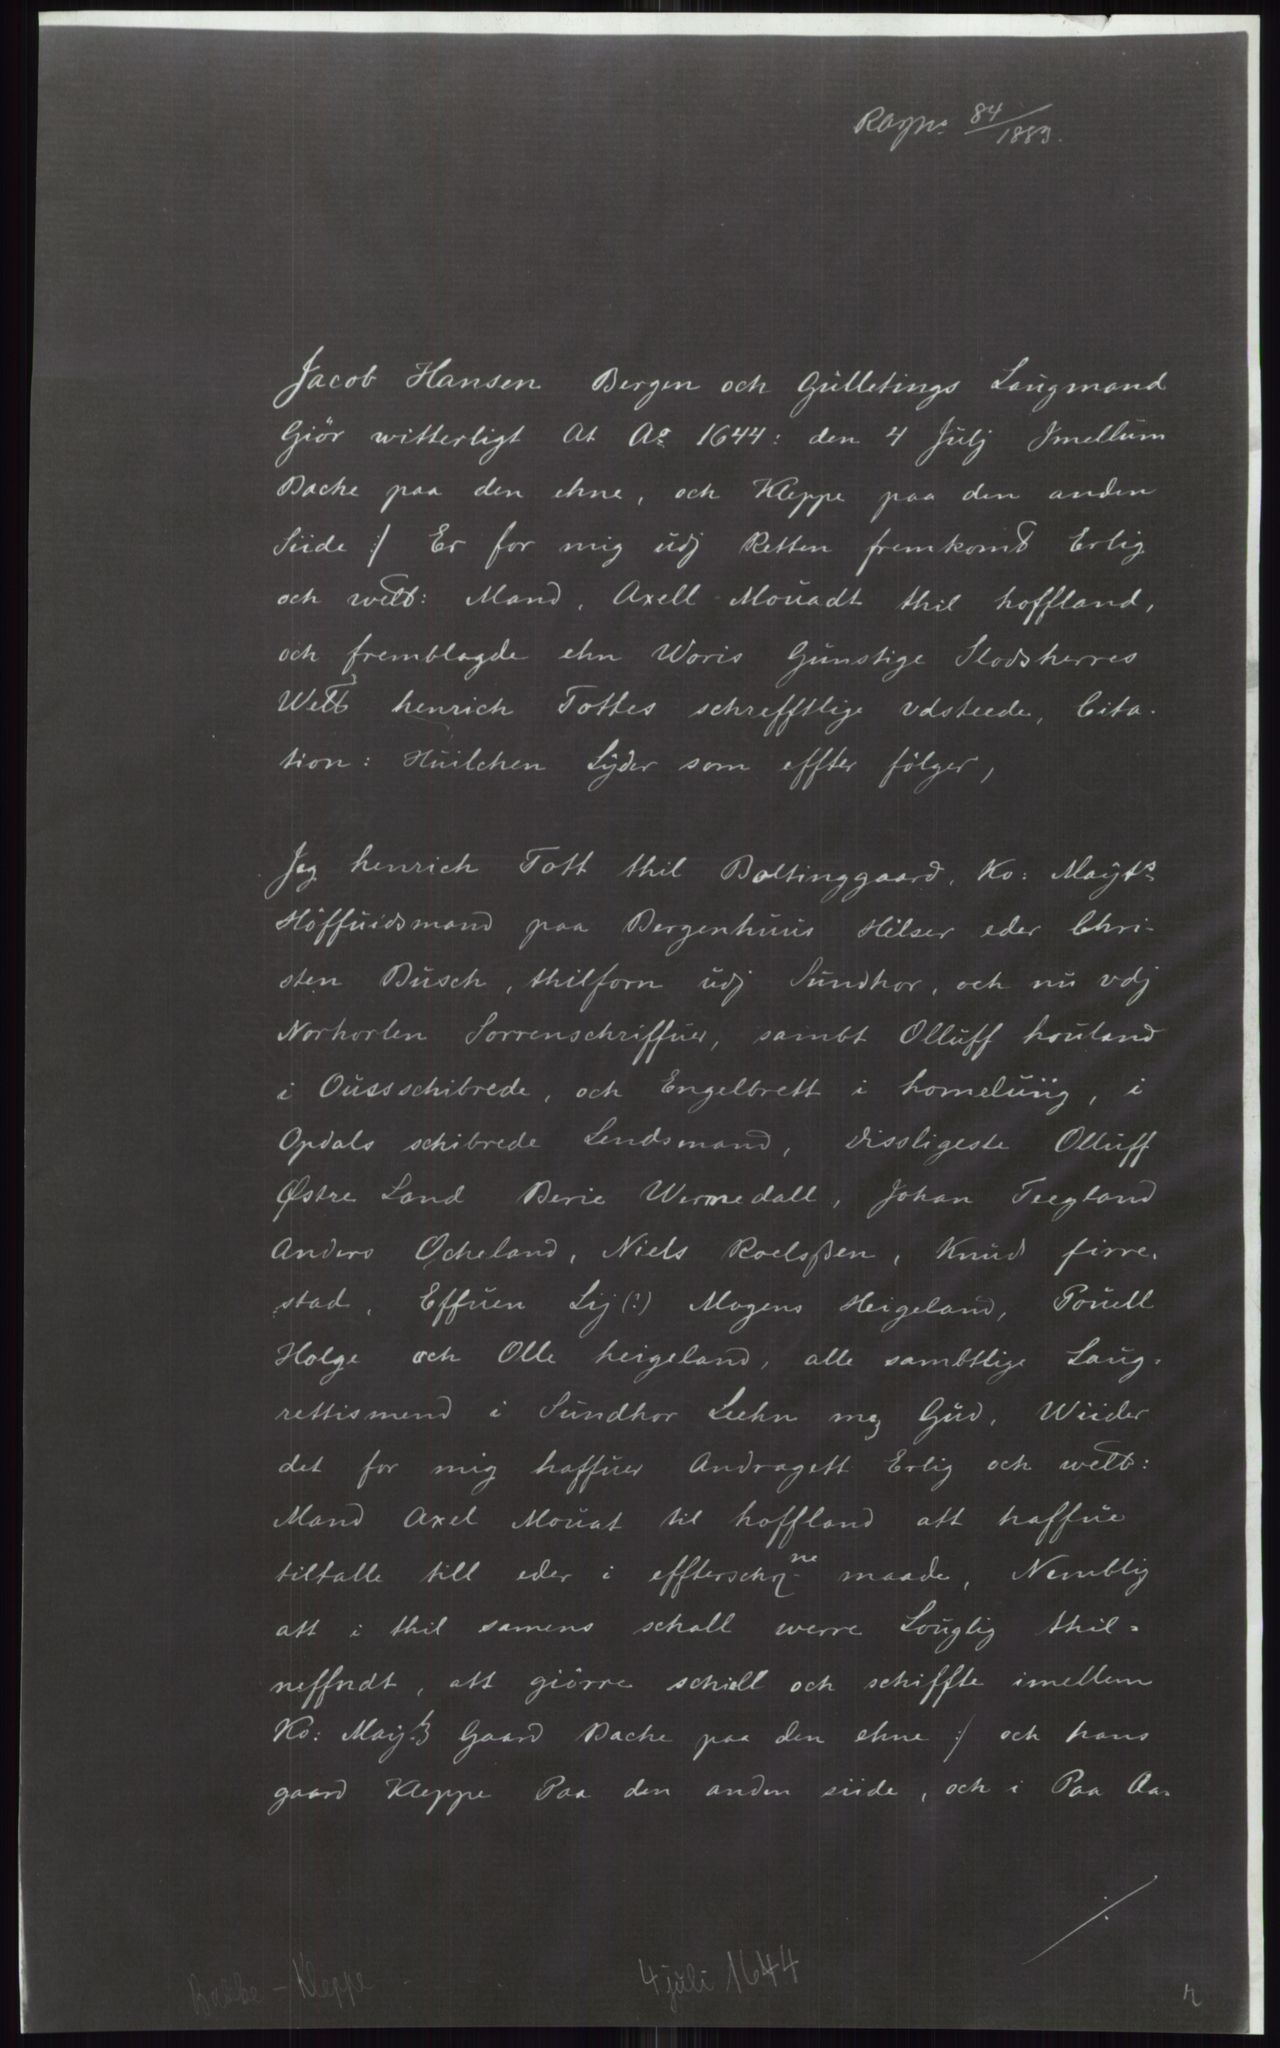 84
1889.
Jacob Hansen Bergen och Gülletings Laugmand
Giör witterligt At Ao 1644: den 4 Julj Jmellum
Backe paa den ehne, och Kleppe paa den anden
Siide :/ Er for mig üdj Retten fremkomt Erlig
och welb: Mand, Axell Moüadt thil hoffland,
och fremblagde ehn Woris Günstige Slodsherres
Welb henrich Tottes schrefftlige vdsteede, Cita-
tion: Hüilchen Lÿder som effter fölger,
Jeg henrich Tott thil Boltinggaard, Ko: Maÿts
Höffuidsmand paa Bergenhüüs Hilser eder Chri-
sten Büsch, thilforn üdj Sündhor, och nü vdj
Norhorlen Sorrenschriffüer, sambt Olluff houland
i Oüssschibrede, och Engelbrett i homelüiig, i
Opdals schibrede Lendsmand, dissligeste Olluff
Østre Land Berie Wermedall, Johan Teegland
Anders Ocheland, Niels Roelsßen, Knüd firre-
stad, Effüen Lij (?) Mogens Heigeland, Poüell
Holge och Olle heigeland, alle sambtlige Laug-
rettismend i Sündhor Leehn mz Güd, Wiider
det for mig haffüer Andragett Erlig och welb:
Mand Axel Mouat til hoffland att haffüe
tiltalle till eder i effterschrne maade, Nemblig
att i thil samens schall werre Louglig thil-
neffndt, att giörre schiell och schiffte imellem
Ko: May:ß Gaard Backe paa den ehne :/ och hans
gaard Kleppe Paa den anden siide, och i Paa Aa-
./.
Bakke - Kleppe
4 juli 1644